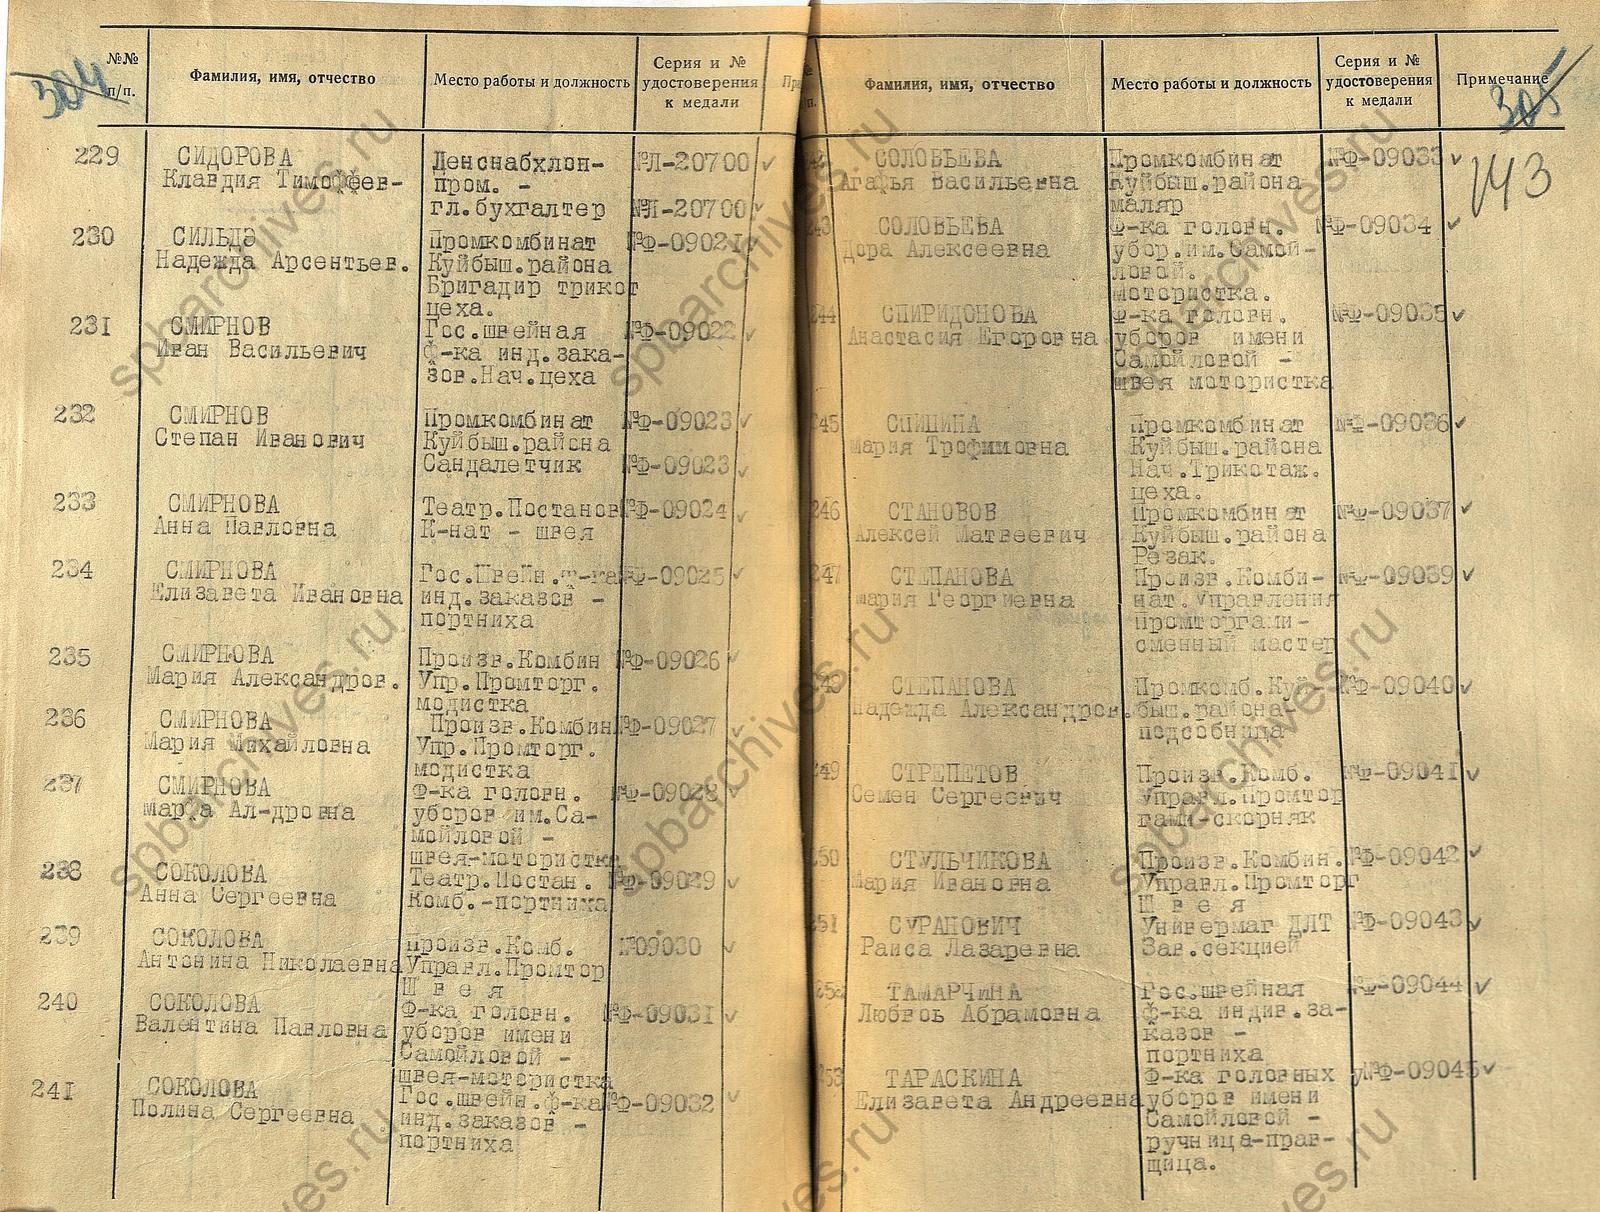 304
№№ п/п.
Фамилия, имя, отчество
Место работы и должность
Серия и № удостоверения к медали
229
СИДОРОВА
Клавдия Тимоффев-
Ленснабхлоп-
пром. -
гл.бухгалтер
№Л-20700
№Л-20700
230
СИЛЬДЭ
Надежда Арсентьев.
Промкомбинат
Куйбыш.района
Бригадир трикот
цеха.
№Ф-09021
231
СМИРНОВ
Иван Васильевич
Гос.швейная
ф-ка инд.зака-
зов.Нач.цеха
№Ф-09022
232
СМИРНОВ
Степан Иванович
Промкомбинат
Куйбыш.района
Сандалетчик
№Ф-09023
№Ф-09023
233
СМИРНОВА
Анна Павловна
Театр.Постанов
К-нат - швея
№Ф-09024
234
СМИРНОВА
Елизавета Ивановна
Гос.Швейн.ф-ка
инд.заказов -
портниха
№Ф-09025
235
СМИРНОВА
Мария Александров.
Произв.Комбин
Упр.Промторг.
модистка
№Ф-09026
236
СМИРНОВА
Мария Михайловна
Произв.Комбин
Упр.Промторг.
модистка
№Ф-09027
237
СМИРНОВА
Марфа Ал-дровна
Ф-ка головн.
уборов им.Са-
мойловой -
швея-мотористка
№Ф-09028
238
СОКОЛОВА
Анна Сергеевна
Театр.Постан.
Комб.-портниха
№Ф-09029
239
СОКОЛОВА
Антонина Николаевна
Произв.Комб.
Управл.Промтор
Ш в е я
№09030
240
СОКОЛОВА
Валентина Павловна
Ф-ка головн.
уборов имени
Самойловой -
швея-мотористка
№Ф-09031
241
СОКОЛОВА
Полина Сергеевна
Гос.швейн.ф-ка
инд.заказов -
портниха
№Ф-09032
Фамилия, имя, отчество
Место работы и должность
Серия и № удостоверения к медали
Примечание
305
143
СОЛОВЬЕВА
Агафья Васильевна
Промкомбинат
Куйбыш.района
маляр
№Ф-09033
243
СОЛОВЬЕВА
Дора Алексеевна
Ф-ка головн.
убор.им.Самой-
ловой.
Мотористка.
№Ф-09034
244
СПИРИДОНОВА
Анастасия Егоровна
Ф-ка головн.
уборов имени
Самойловой -
швея мотористка
№Ф-09035
245
СПИЦИНА
Мария Трофимовна
Промкомбинат
Куйбыш.района
Нач.Трикотаж.
цеха.
№Ф-09036
246
СТАНОВОВ
Алексей Матвеевич
Промкомбинат
Куйбыш.района
Резак.
№Ф-09037
247
СТЕПАНОВА
Мария Георгиевна
Произв.Комби-
нат.Управления
Промторгами-
сменный мастер
№Ф-09039
248
СТЕПАНОВА
Надежда Александров.
Промкомб.Куй
быш.района-
подсобница
№Ф-09040
249
СТРЕПЕТОВ
Семен Сергеевич
Произв.Комб.
Управл.Промтор
гами-скорняк
№Ф-09041
250
СТУЛЬЧИКОВА
Мария Ивановна
Произв.Комбин.
Управл.Промторг
Ш в е я
№Ф-09042
251
СУРАНОВИЧ
Раиса Лазаревна
Универмаг ДЛТ
Зав.секцией
№Ф-09043
252
ТАМАРЧИНА
Любовь Абрамовна
Гос.швейная
ф-ка индив.за-
казов -
портниха
№Ф-09044
253
ТАРАСКИНА
Елизавета Андреевна
Ф-ка головных
уборов имени
Самойловой -
ручница-прав-
щица.
№Ф-09045
spbarchives.ru